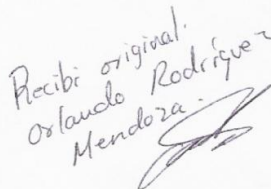 Recibi original.
Orlando Rodríguez
Mendoza.